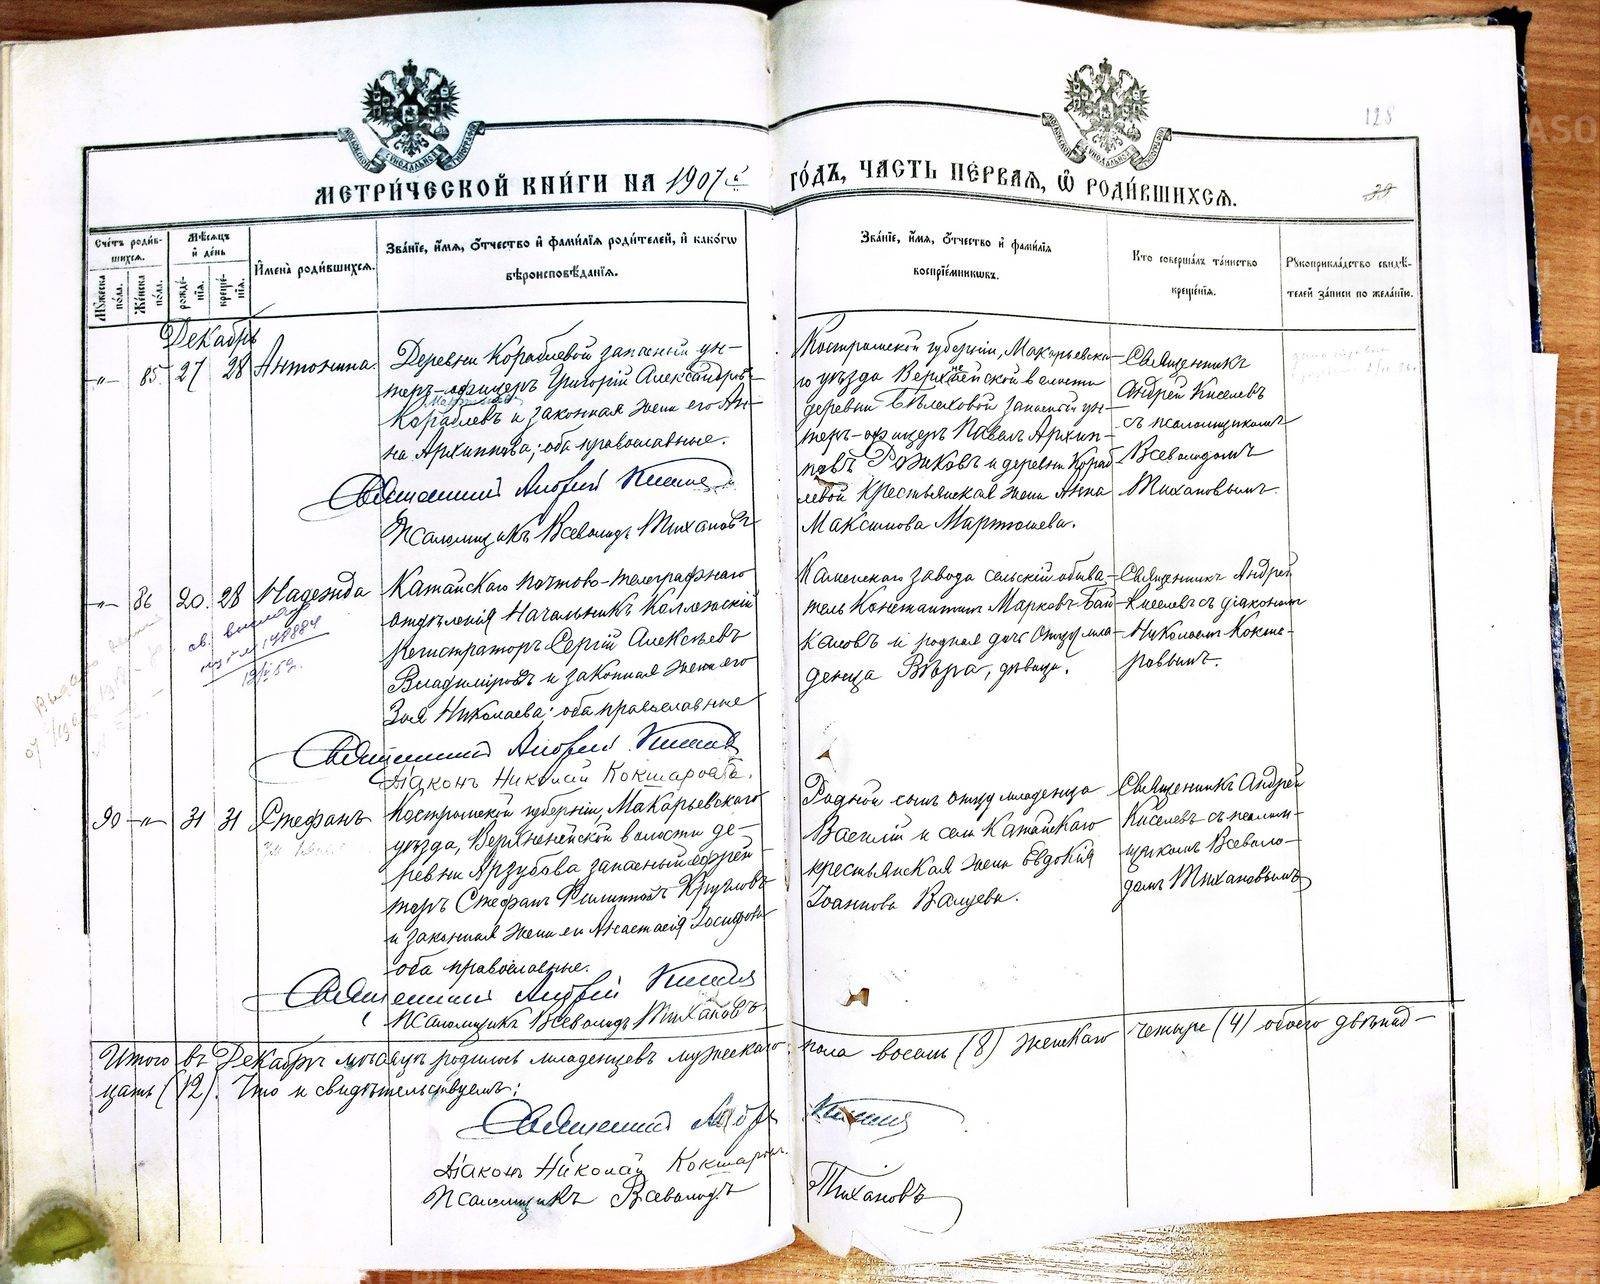 128
МЕТРИ́ЧЕСКОЙ КНИ́ГИ НА 1907 й
ГО́ДЪ, ЧАСТЬ ПЕ́РВАЯ, Ѡ҆ РОДИ́ВШИХСЯ.
39
Сче́тъ роди́в-
шихся.
Му́жеска по́ла.
Же́нска по́ла.
Мѣ́сяцъ
и҆ де́нь
рожде́нїя.
креще́нїя.
И҆мена̀ роди́вшихся.
Зва́нїе, и҆́мя, ѻ҆́тчество и҆ фами́лїя роди́телей, и҆ како́гѡ
вѣроисповѣ́данїя.
Зва́нїе, и҆́мя, ѻ҆́тчество и҆ фами́лїя
воспрїе́мникѡвъ.
Кто̀ соверша́лъ та́инство
креще́нїя.
Рꙋкоприкла́дство свидѣ́-
телей за́писи по жела́нїю.
Декабрь
-"- 85 27 28 Антонина.
Деревни Кораблевой запасный ун-
теръ-офицеръ Григорій Александровъ
Кораблевъ и законная жена его Ан-
на Архиппова; оба православные.
Священникъ Андрей Киселев
Псаломщикъ Всеволодъ Тихановъ
Костромской губерніи, Макарьевска-
го уѣзда Верхнейской волости
деревни Бѣлеховой запасной ун-
теръ-офицеръ Павелъ Архип-
повъ Рожковъ и деревни Кораб
левой крестьянская жена Анна
Максимова Мартюшева.
Священникъ
Андрей Киселевъ
съ псаломщикомъ
Всеволодомъ
Тихановымъ.
-"- 86 20. 28 Надежда
св.
12/II 52.
Катайскаго почтово-телеграфнаго
отдѣленія Начальникъ Коллежскій
Регистраторъ Сергій Алексѣевъ
Владиміровъ и законная жена его
Зоя Николаева; оба православные
Священникъ Андрей Киселев
Діаконъ Николай Кокшаровъ.
Каменскаго завода сельскій обыва-
тель Константинъ Марковъ Бай-
каловъ и родная дочь отцу мла-
денца Вѣра, дѣвица.
Священникъ Андрей
Киселевъ съ діакономъ
Николаемъ Кокша-
ровымъ.
90 -"- 31 31 Стефанъ
Костромской губерніи, Макарьевскаго
уѣзда, Верхненейской волости де-
ревни Арзубова запасный ефрей-
торъ Стефанъ Филипповъ Кругловъ
и законная жена его Анастасія Іосифова
оба православные.
Священникъ Андрей Киселев
Псаломщикъ Всеволодъ Тихановъ
Родной сынъ отцу младенца
Василій и села Катайскаго
крестьянская жена Евдокія
Іоаннова Валуева.
Священникъ Андрей
Киселевъ съ псалом-
щикомъ Всеволо-
домъ Тихановымъ
Итого въ Декабрѣ мѣсяцѣ родилось младенцевъ мужескаго пола восемь (8) женскаго четыре (4) обоего двѣнад-
цать (12). Что и свидѣтельствуемъ:
Священникъ Андрей Киселев
Діаконъ Николай Кокшаровъ.
Псаломщикъ Всеволодъ Тихановъ